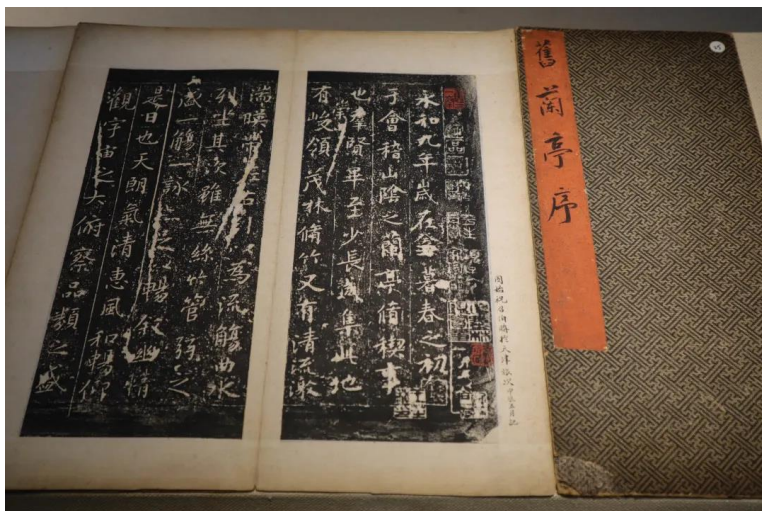 舊蘭亭序
永和九年歲在癸丑暮春之初會
于會稽山陰之蘭亭脩稧事
也羣賢畢至少長咸集此地
有峻領茂林脩竹又有清流激
湍暎帶左右引為流觴曲水
列坐其次雖無絲竹管弦之
盛一觴一詠暢敘幽情
是日也天朗氣清惠風和暢仰
觀宇宙之大俯察品類之盛